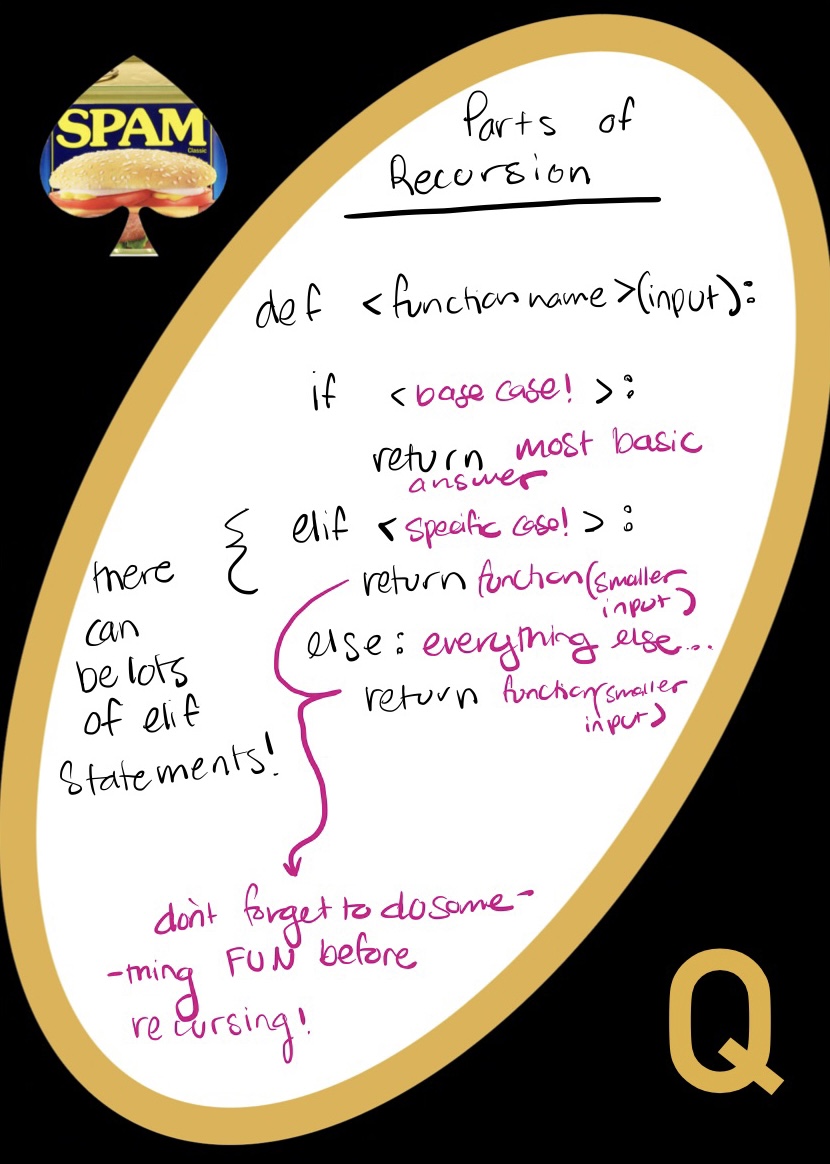 SPAM
Classic
Parts of
Recursion
def <function name>(input):
if <base case!>:
return most basic
answer
elif <specific case!>:
return function(smaller
input)
else: everything else...
return function(smaller
input)
there
can
be lots
of elif
Statements!
don't forget to do some-
-thing FUN before
recursing!
Q